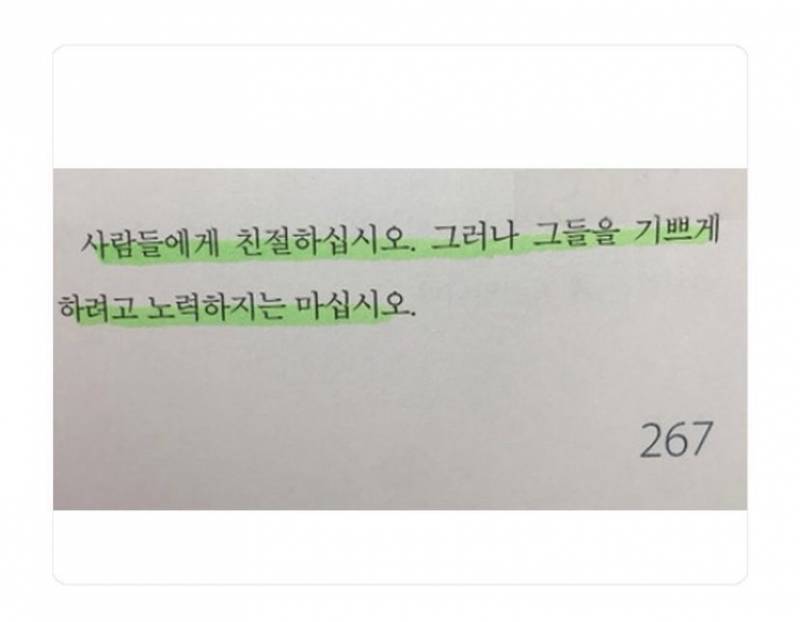 사람들에게 친절하십시오. 그러나 그들을 기쁘게
하려고 노력하지는 마십시오.
267